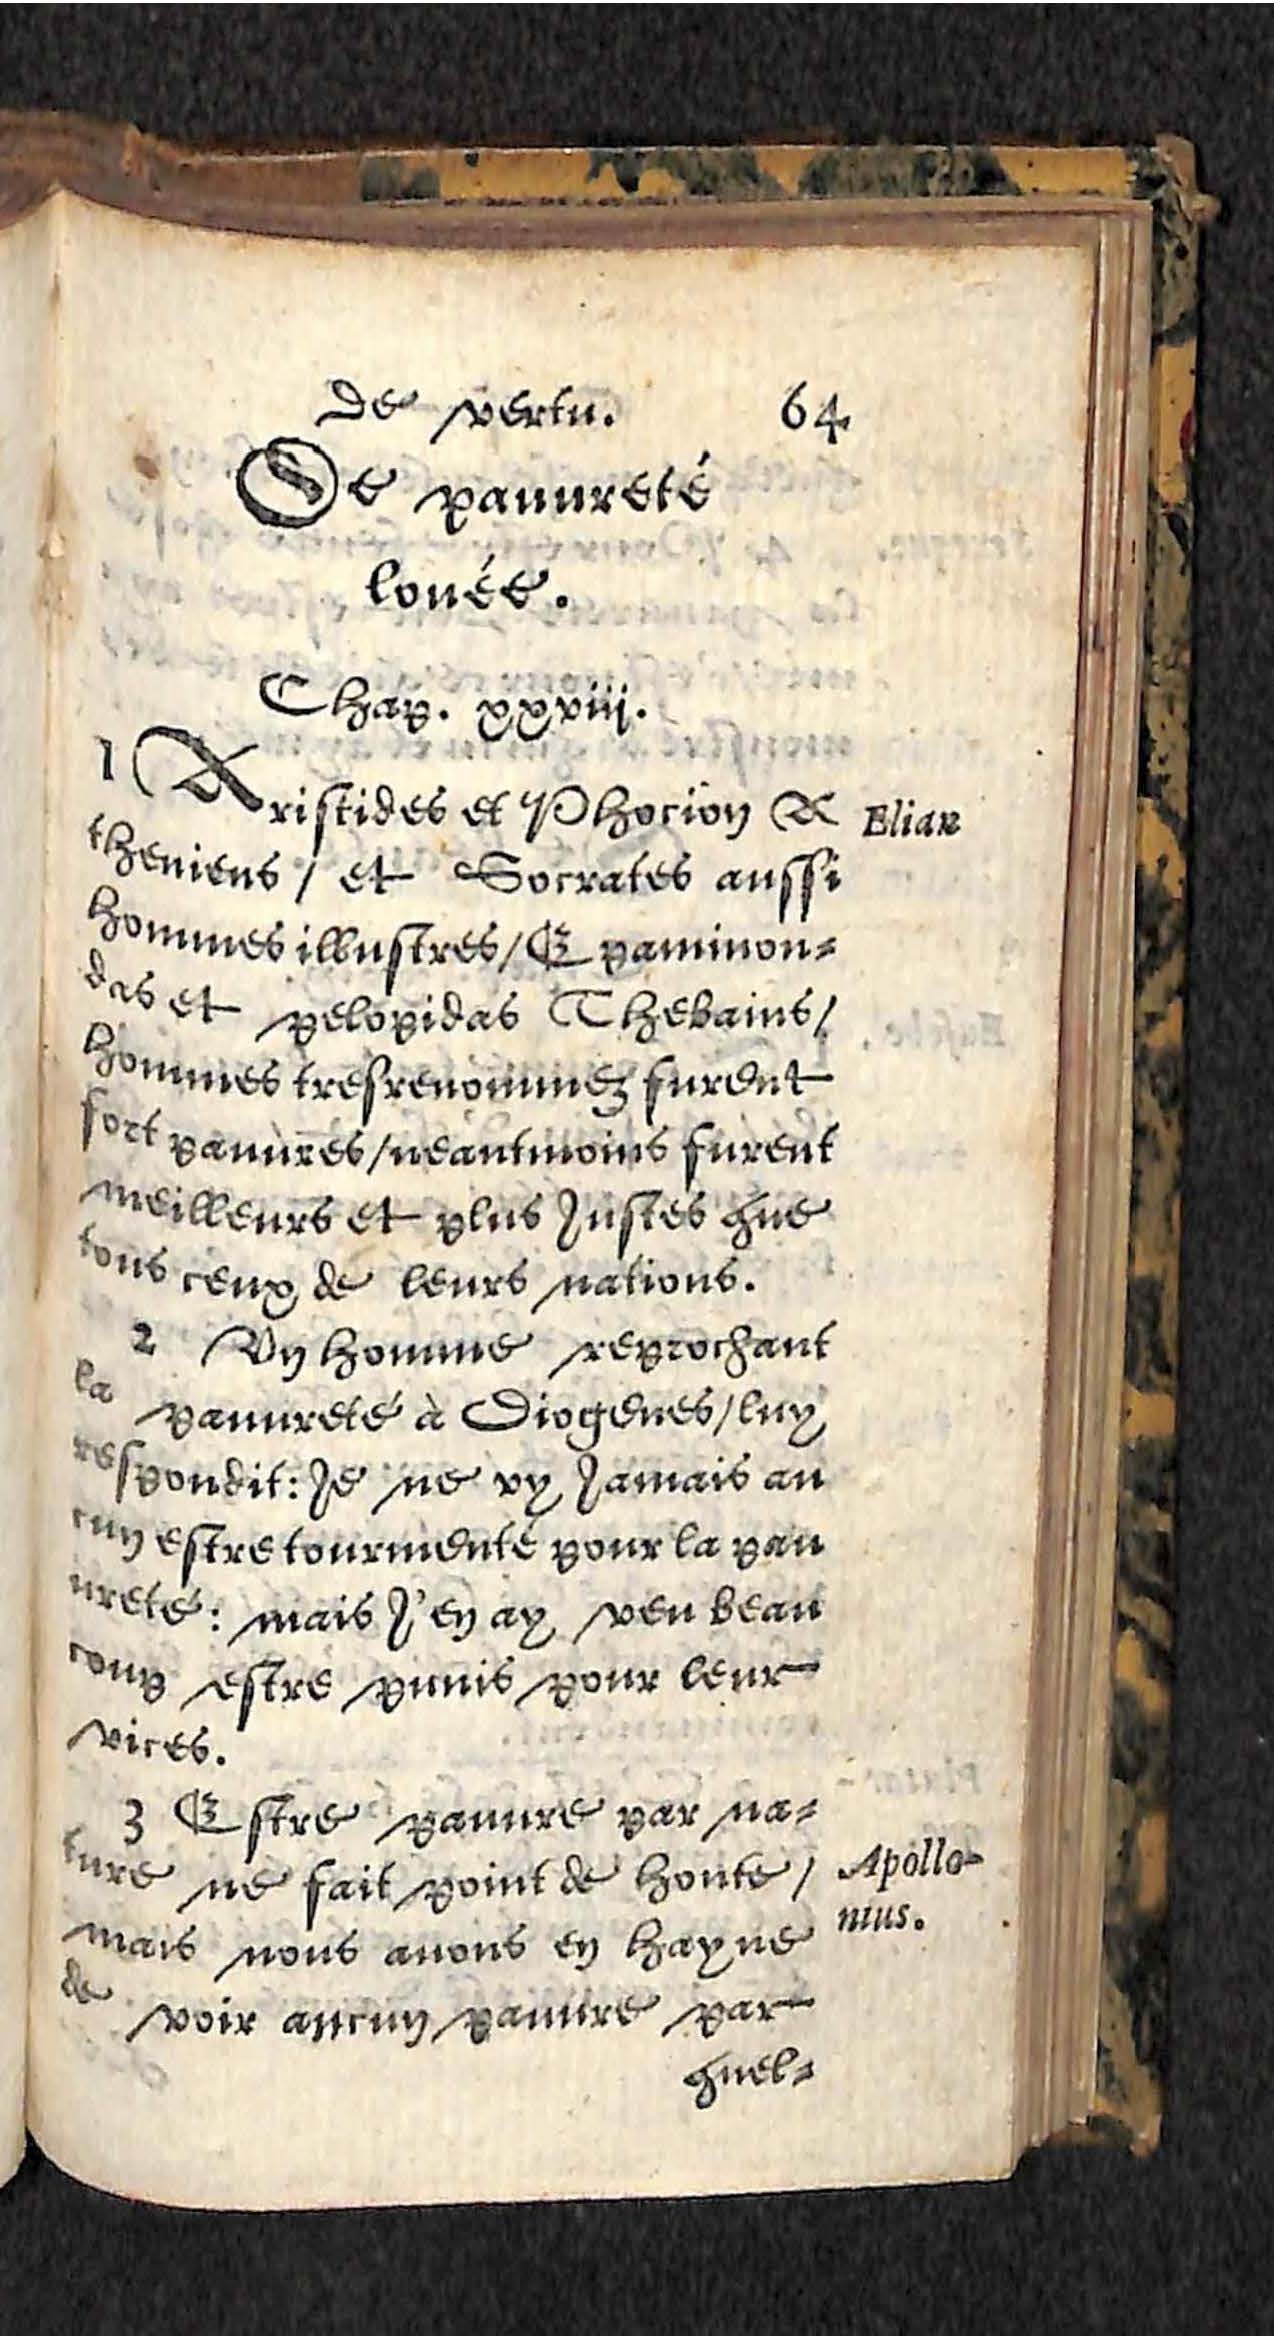 de vertu. 64
De pauureté
louée.
Chap. xxxviii.
1 Aristides et Phocion A
theniens / et Socrates aussi
hommes illustres / Epaminon-
das et pelopidas Thebains /
hommes tresrenommez furent
fort pauures / neantmoins furent
meilleurs et plus Justes que
tous ceux de leurs nations.
Elian
2 Vn homme reprochant
la pauureté à Diogenes / luy
respondit: Je ne vy Jamais au
cun estre tourmenté pour la pau
ureté: mais J'en ay veu beau
coup estre punis pour leur
vices.
3 Estre pauure par na-
ture ne fait point de honte /
mais nous auons en hayne
de voir aucun pauure par
quel-
Apollo-
nius.